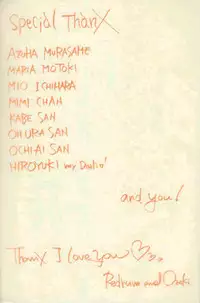 Special ThanX
AZUHA MURASAME
MARIA MOTOKI
MIO ICHIHARA
MIMI CHAN
KABE SAN
OHURA SAN
OCHIAI SAN
HIROYUKI my Darlin'
and you!
ThanX I love you
and